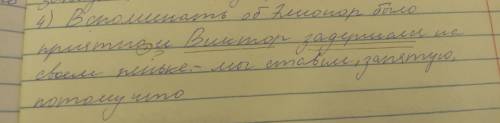 4) Вспоминать об Элионор было
приятно и Виктор задержался на
своем пеньке - мы ставим, запятую,
потому что